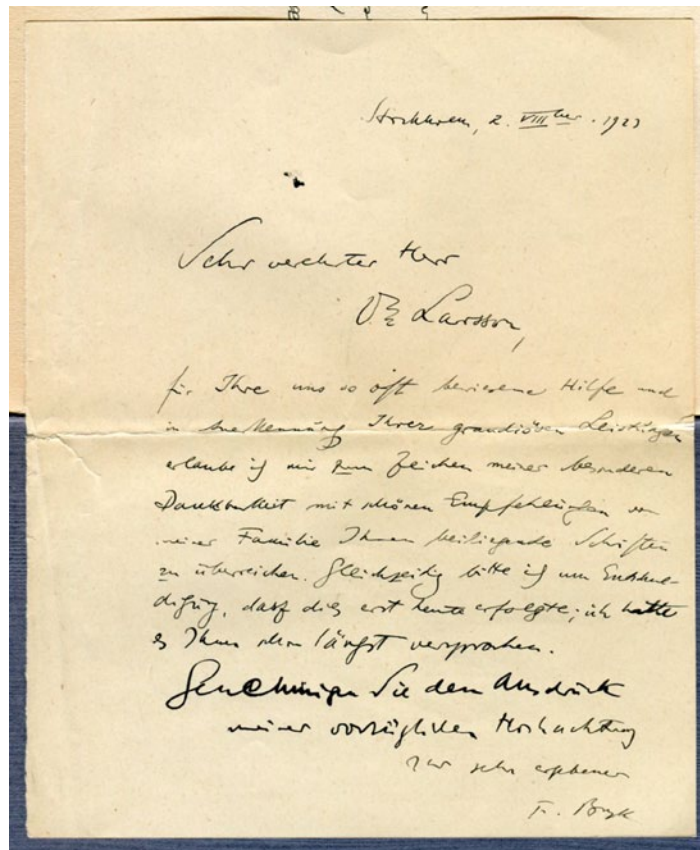 Stockholm, 2. VIIIber. 1923
Sehr verehrter Herr
Larsson,
für Ihre uns so oft bewiesene Hilfe und
in Anerkennung Ihrer grandiösen Leistungen
erlaube ich mir zum Zeichen meiner besonderen
Dankbarkeit mit schönen Empfehlungen von
meiner Familie Ihnen beiliegende Schriften
zu überreichen. Gleichzeitig bitte ich um Entschul-
digung, dass dies erst heute erfolgte; ich hatte
es Ihnen schon längst versprochen.
Genehmigen Sie den Ausdruck
meiner vorzüglichen Hochachtung
Ihr sehr ergebener
F. Bryk